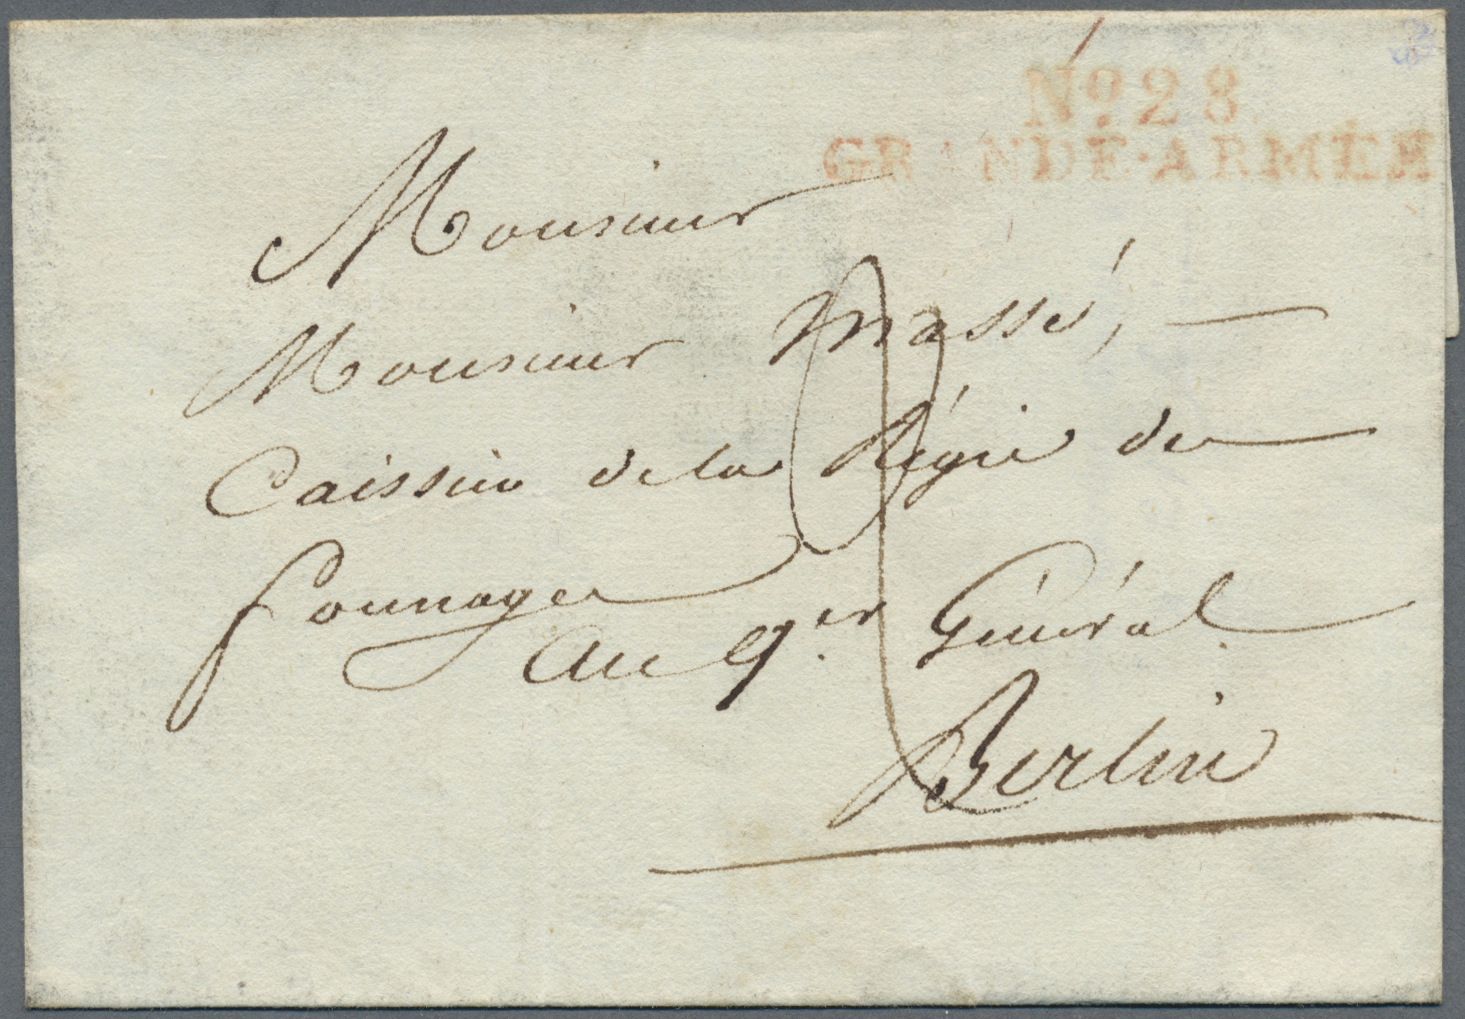 No. 28
GRANDE·ARMÉE
Monsieur
Monsieur Massé,
Caissier de la Régie des
fourrages
Au qer. Général
Berlin